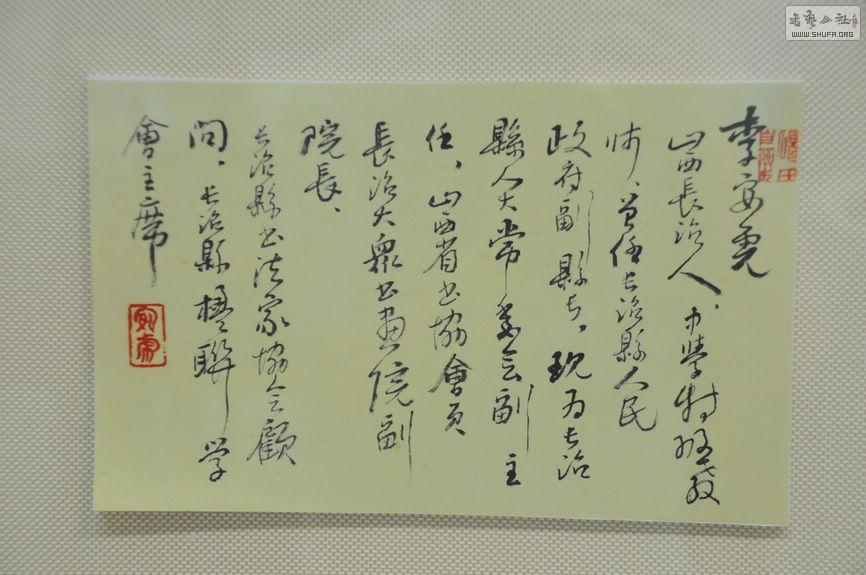 李安虎
山西長治人、中學特級教
师、曾任长治縣人民
政府副縣长，现为长治
縣人大常委会副主
任、山西省书協會员
長治大眾书画院副
院長、
长治縣书法家協会顧
问、长治縣楹聯学
會主席
书艺公社
WWW.SHUFA.ORG